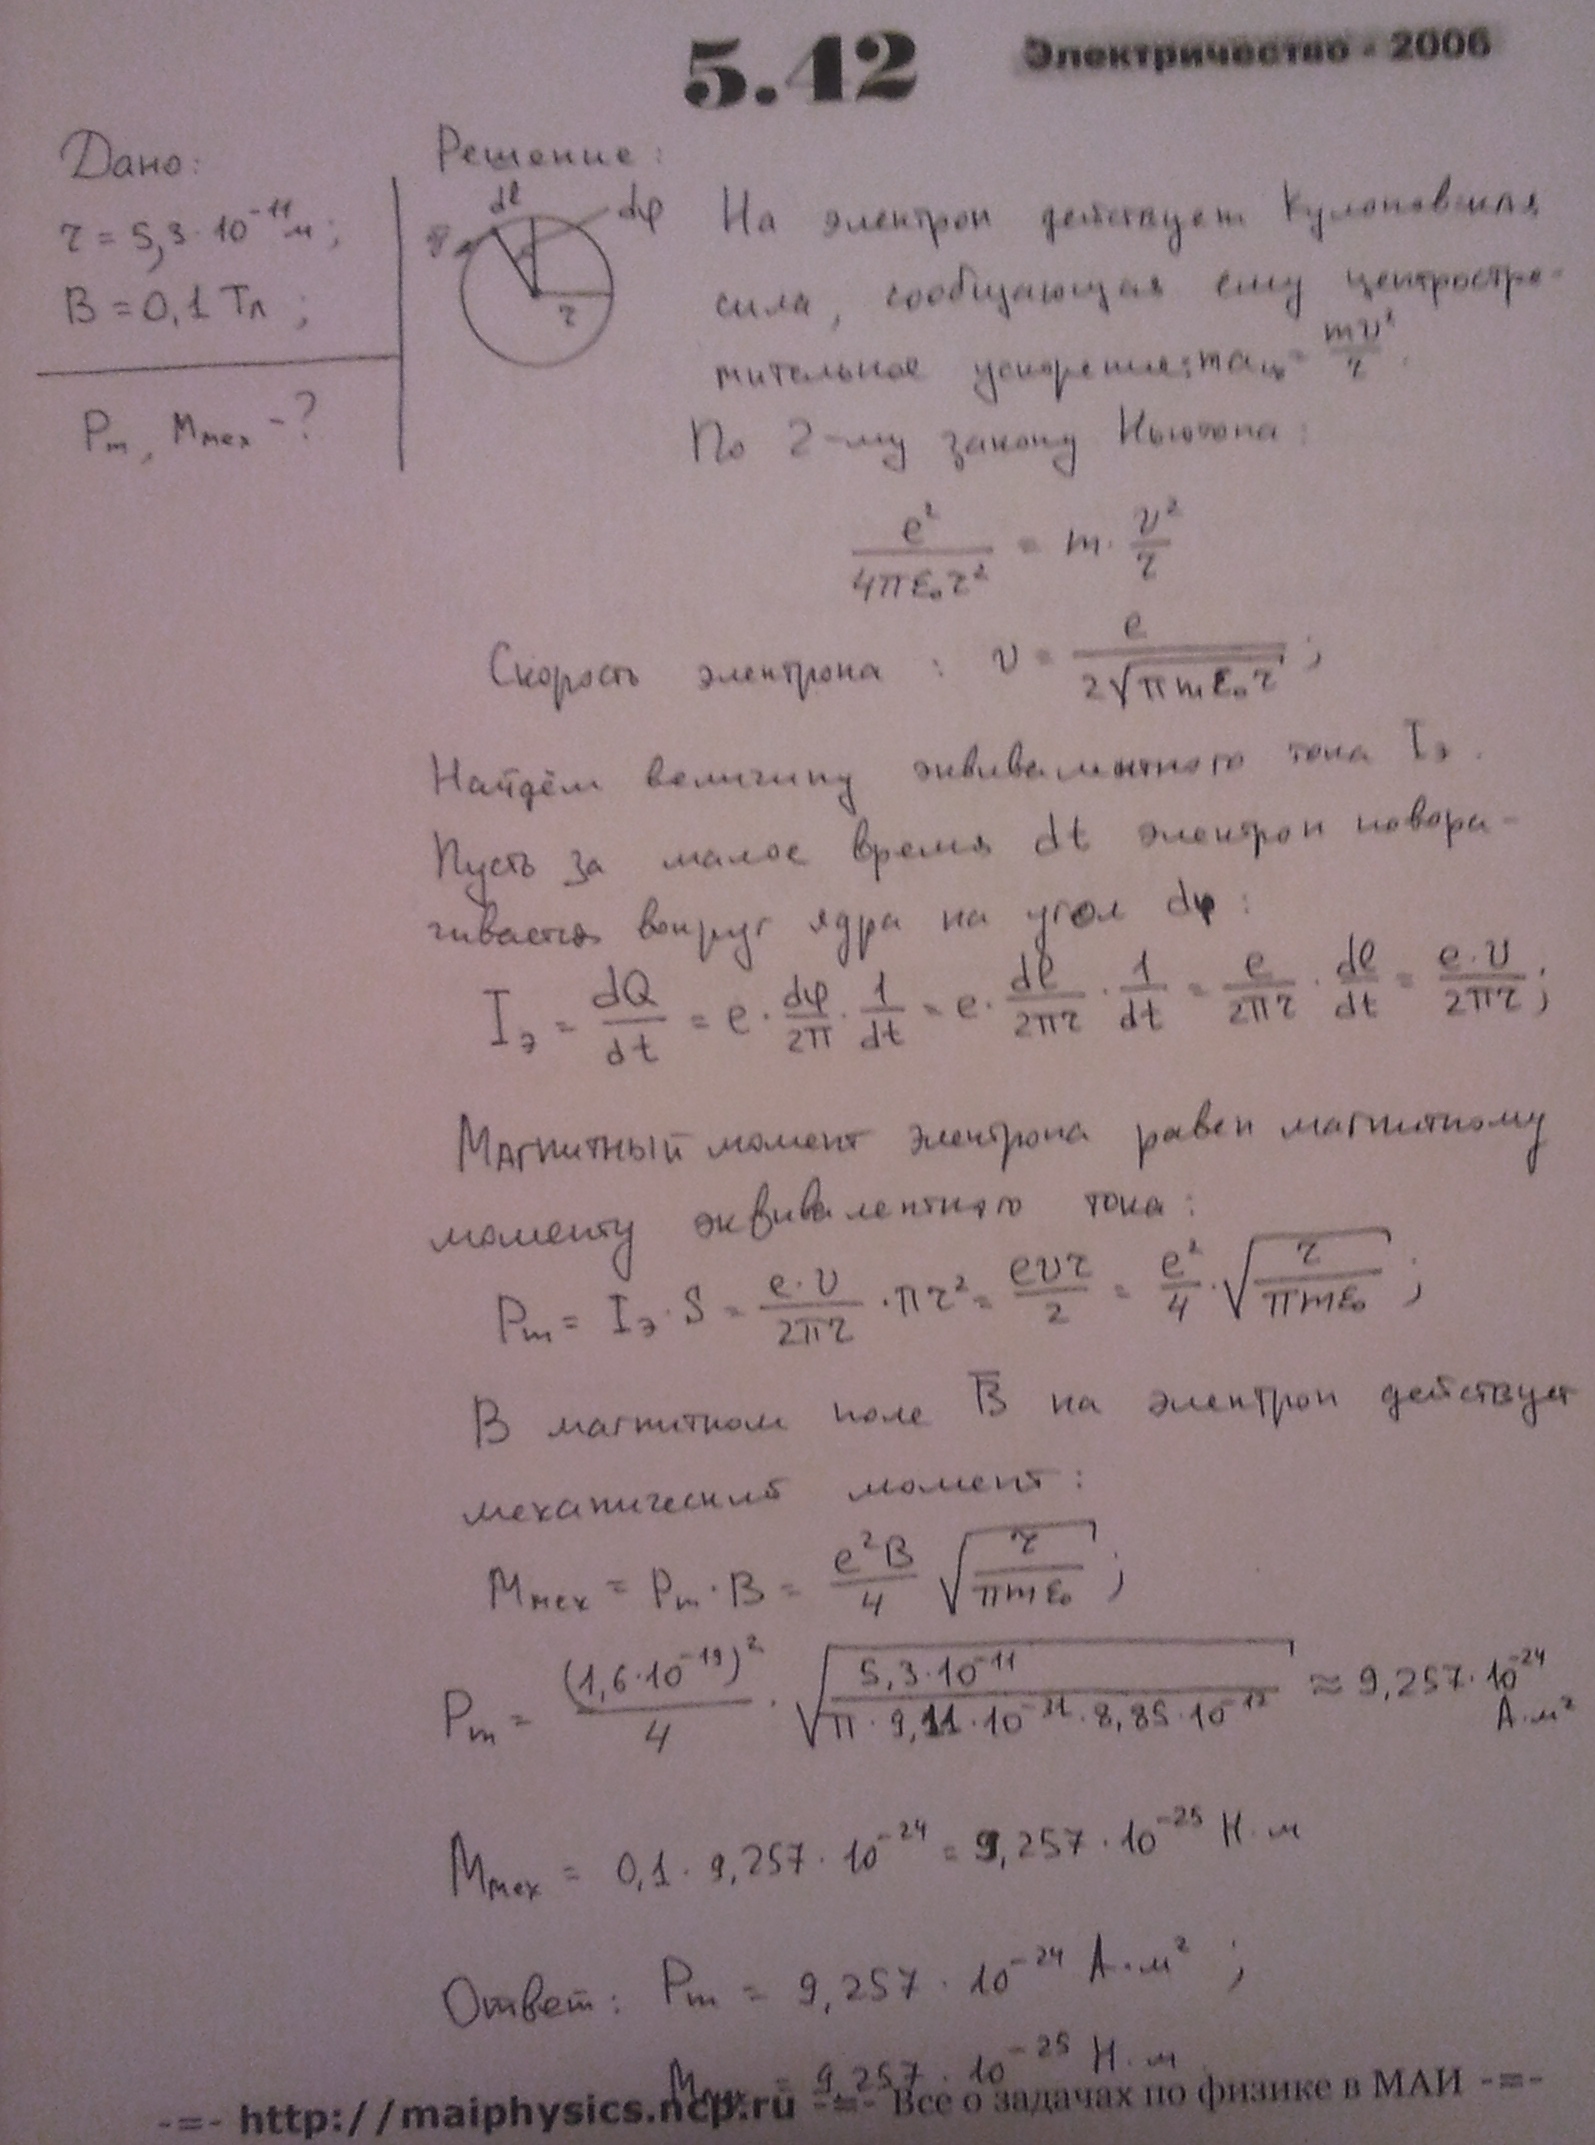 5.12 Электричество - 2006
Дано:
r = 5,3·10⁻¹¹ м;
B = 0,1 Тл;
Pm, Mмех - ?
Решение:
dl
dφ
r
На электрон действует Кулоновская
сила, сообщающая ему центростре-
мительное ускорение: = mv²/r.
По 2-му закону Ньютона:
e²/(4πε₀r²) = m · v²/r
Скорость электрона: v = e/(2√(πmε₀r));
Найдём величину эквивалентного тока Iэ.
Пусть за малое время dt электрон повора-
чивается вокруг ядра на угол dφ:
Iэ = dQ/dt = e · dφ/2π · 1/dt = e · dl/2πr · 1/dt = e/2πr · dl/dt = e·v/2πr;
Магнитный момент электрона равен магнитному
моменту эквивалентного тока:
Pm = Iэ · S = e·v/2πr · πr² = evr/2 = e²/4 · √(r/(πmε₀));
В магнитном поле B̄ на электрон действует
механический момент:
Mмех = Pm · B = e²B/4 √(r/(πmε₀));
Pm = (1,6·10⁻¹⁹)²/4 · √(5,3·10⁻¹¹/(π · 9,11·10⁻³¹ · 8,85·10⁻¹²)) ≈ 9,257·10⁻²⁴ А·м²
Mмех = 0,1 · 9,257 · 10⁻²⁴ = 9,257 · 10⁻²⁵ Н·м
Ответ: Pm = 9,257 · 10⁻²⁴ А·м²;
Mмех = 9,257 · 10⁻²⁵ Н·м
-=- http://maiphysics.ncp.ru -=- Все о задачах по физике в МАИ -=-